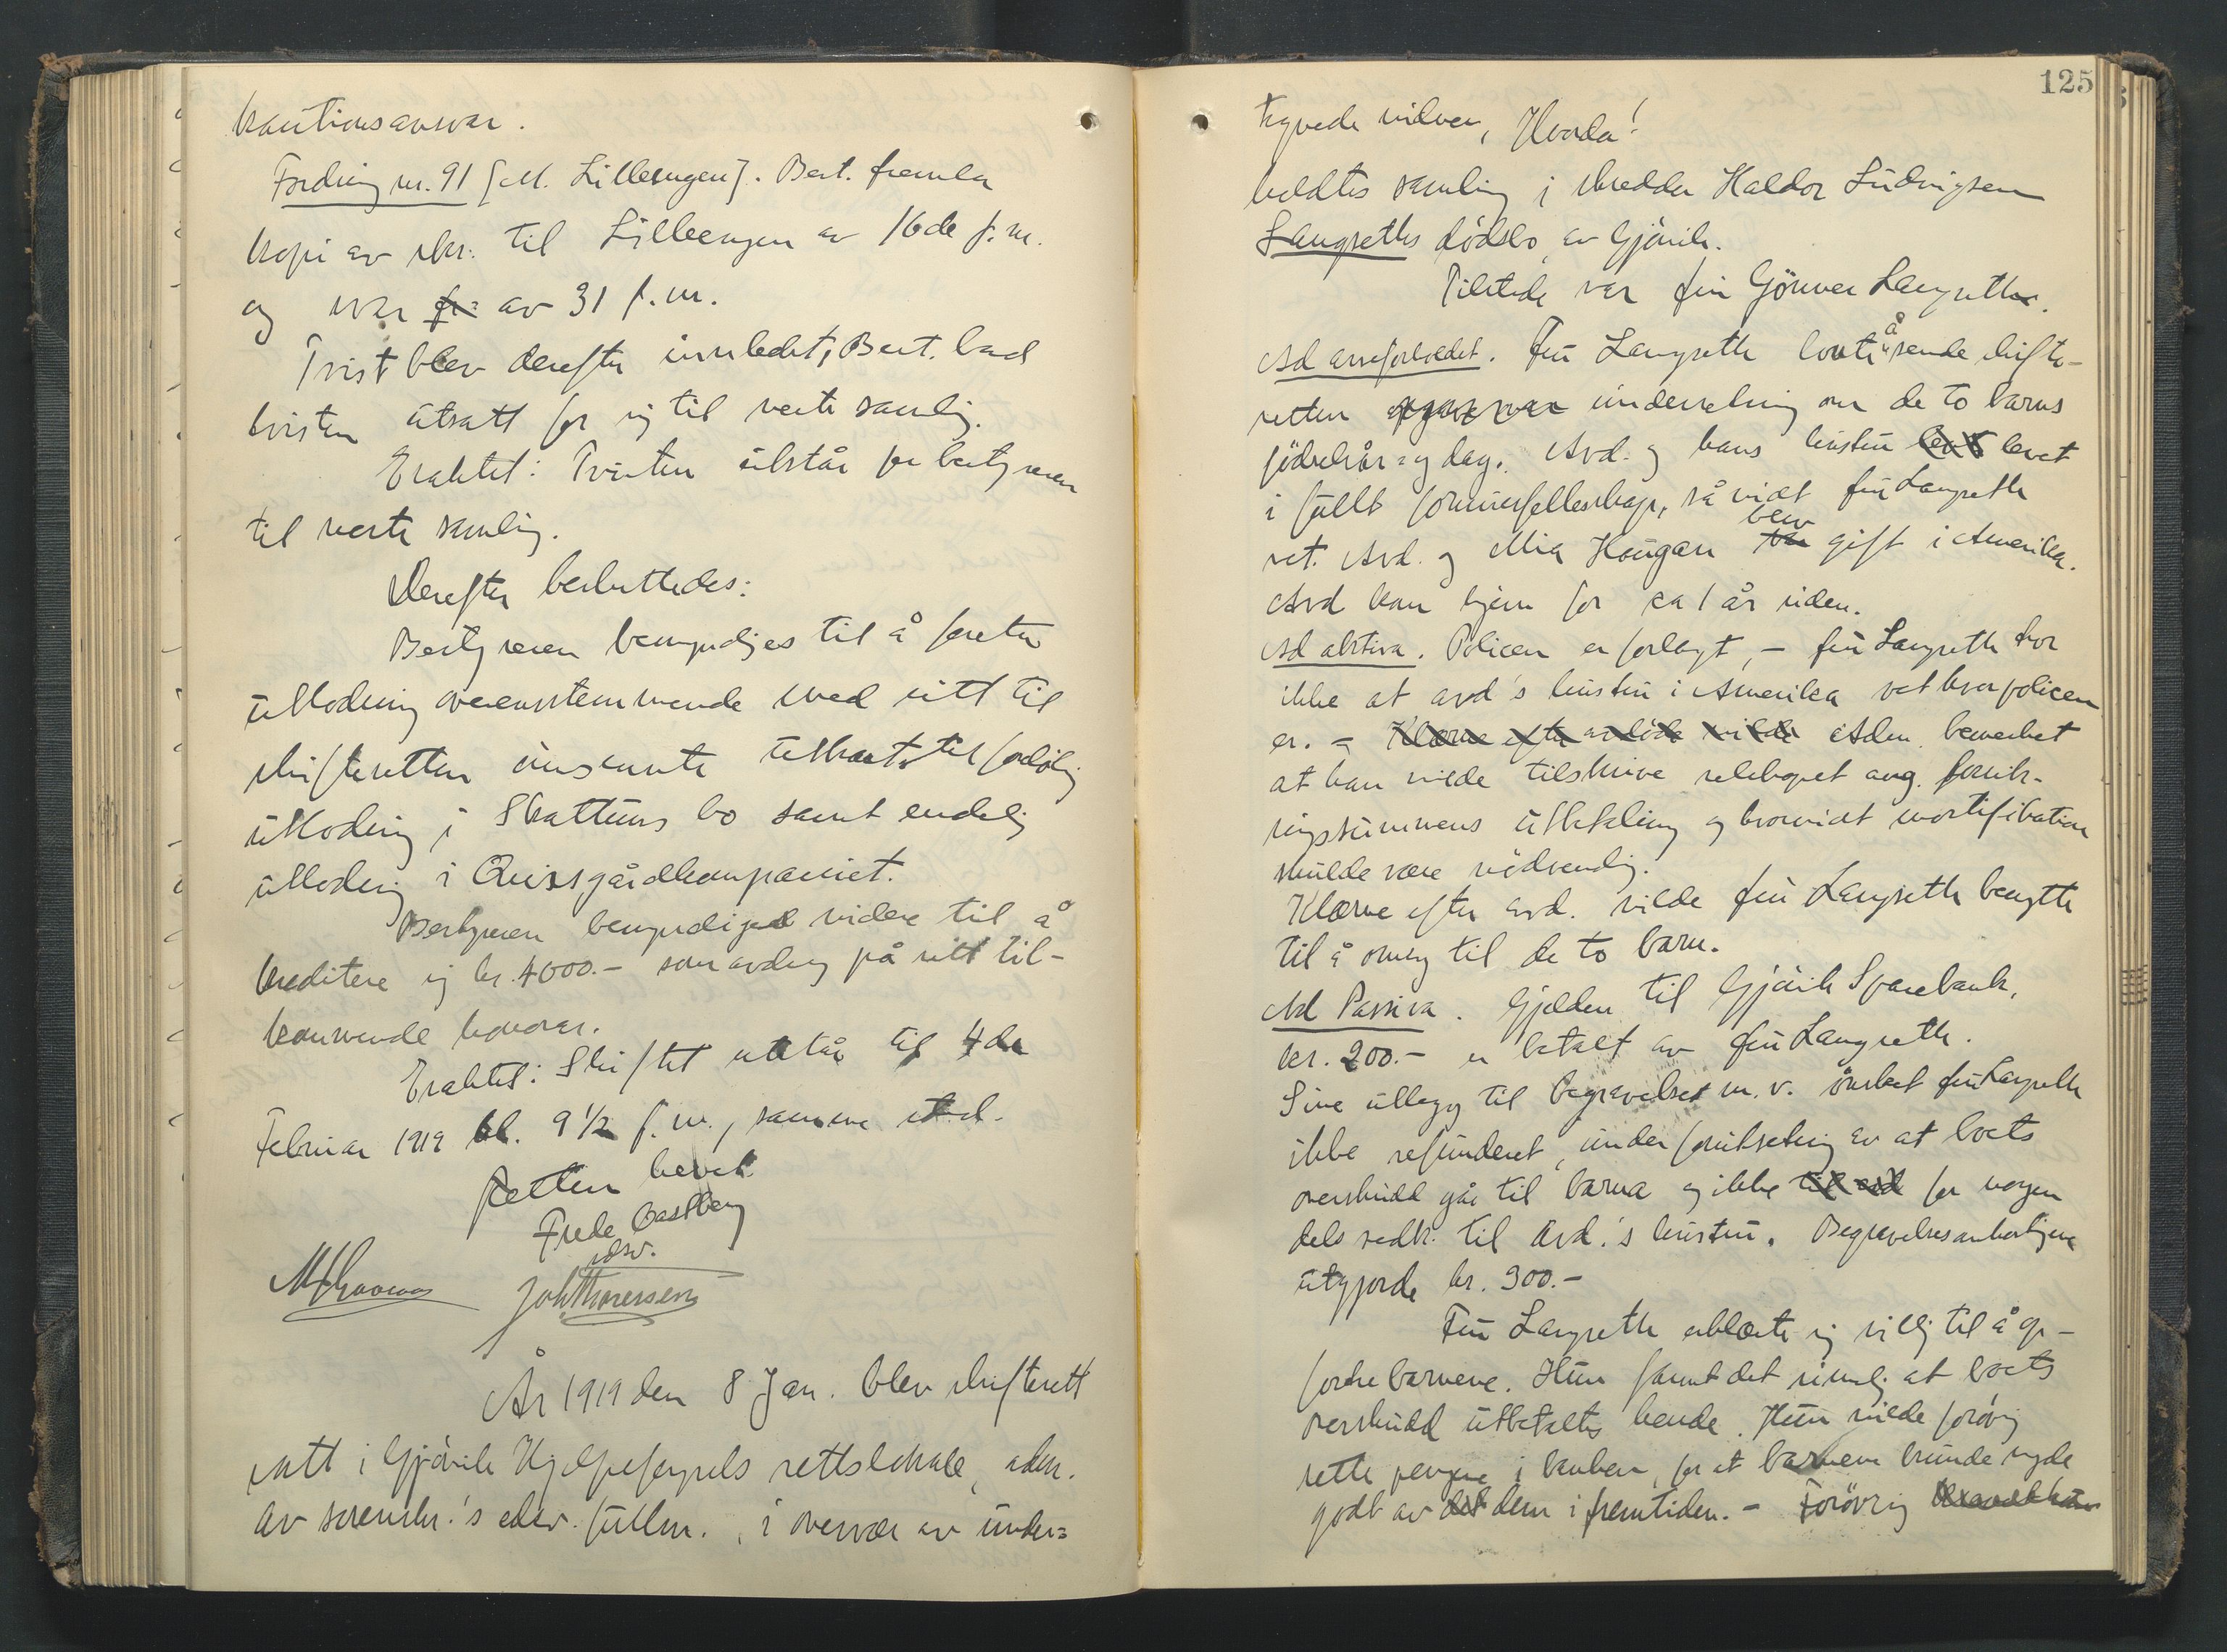 kautionsansvar.
Fordring nr. 91 [M. Lilleengen]. Best. fremla
kopi av skr. til Lilleengen av 16de f.m.
og svar fr: av 31 f.m.
Tvist blev derefter innledet, Best. bad
tvisten utsatt for sig til neste samling.
Eraktet: Tvisten utstår for bestyreren
til neste samling.
Derefter besluttedes:
Bestyreren bemyndiges til å foreta
utlodning overensstemmende med sitt til
skifteretten innsendte utkast til foreløbig
utlodning i Skattums bo samt endelig
utlodning i Quisgårdkompaniet.
Bestyreren bemyndiged videre til å
kreditere sig kr. 4000.- som avdrag på sitt til-
kommende honorar.
Eraktet: Skiftet utstår til 4de
Februar 1919 kl. 9 1/2 f.m., samme sted.
Retten hevet
Frede Castberg
edsv.
Joh Thoresen
År 1919 den 8 Jan. blev skifterett
satt i Gjövik Hjelpefengsels rettslokale, adm.
av sorenskr.'s edsv. fullm., i overvær av under=
125
tegnede vidner, Hvorda!
holdtes samling i skredder Haldor Ludvigsen
Langseths dödsbo, av Gjövik.
Tilstede var fru Gönner Langseth.
Ad arveforholdet. Fru Langseth lovte å sende skifte-
retten opgave over underretning om de to barns
födselsår= og dag. Avd. og hans hustru lev levet
i fullt formuesfellesskap, så vidt fru Langseth
vet. Avd. og Mia Haugan var blev gift i Amerika.
Avd kom hjem for ca 1 år siden.
Ad aktiva. Policen er forlagt, - fru Langseth tror
ikke at avd's hustru i Amerika vet hvor policen
er. - Klærne efter avdöde vilde Adm. bemerket
at han vilde tilskrive selskapet ang. forsik-
ringssummens utbetaling og hvorvidt mortifikation
skulde være nödvendig.
Klærne efter avd. vilde fru Langseth benytte
til å omsy til de to barn.
Ad Passiva. Gjelden til Gjövik Sparebank,
kr. 200.- er betalt av fru Langseth.
Sine utlegg til begravelset m.v. önsket fru Langseth
ikke refunderet, under forutsetning av at boets
overskudd går til barna og ikke til avd for nogen
dels vedk. til avd.'s hustru. Begravelsesomkostningene
utgjorde kr. 300.-
Fru Langseth erklærte sig villig til å op-
fostre barnene. Hun fannt det rimelig at boets
overskudd utbetaltes hende. Hun vilde forövrig
sette pengene i banken, for at barnene kunde nyde
godt av det dem i fremtiden. - Forövrig